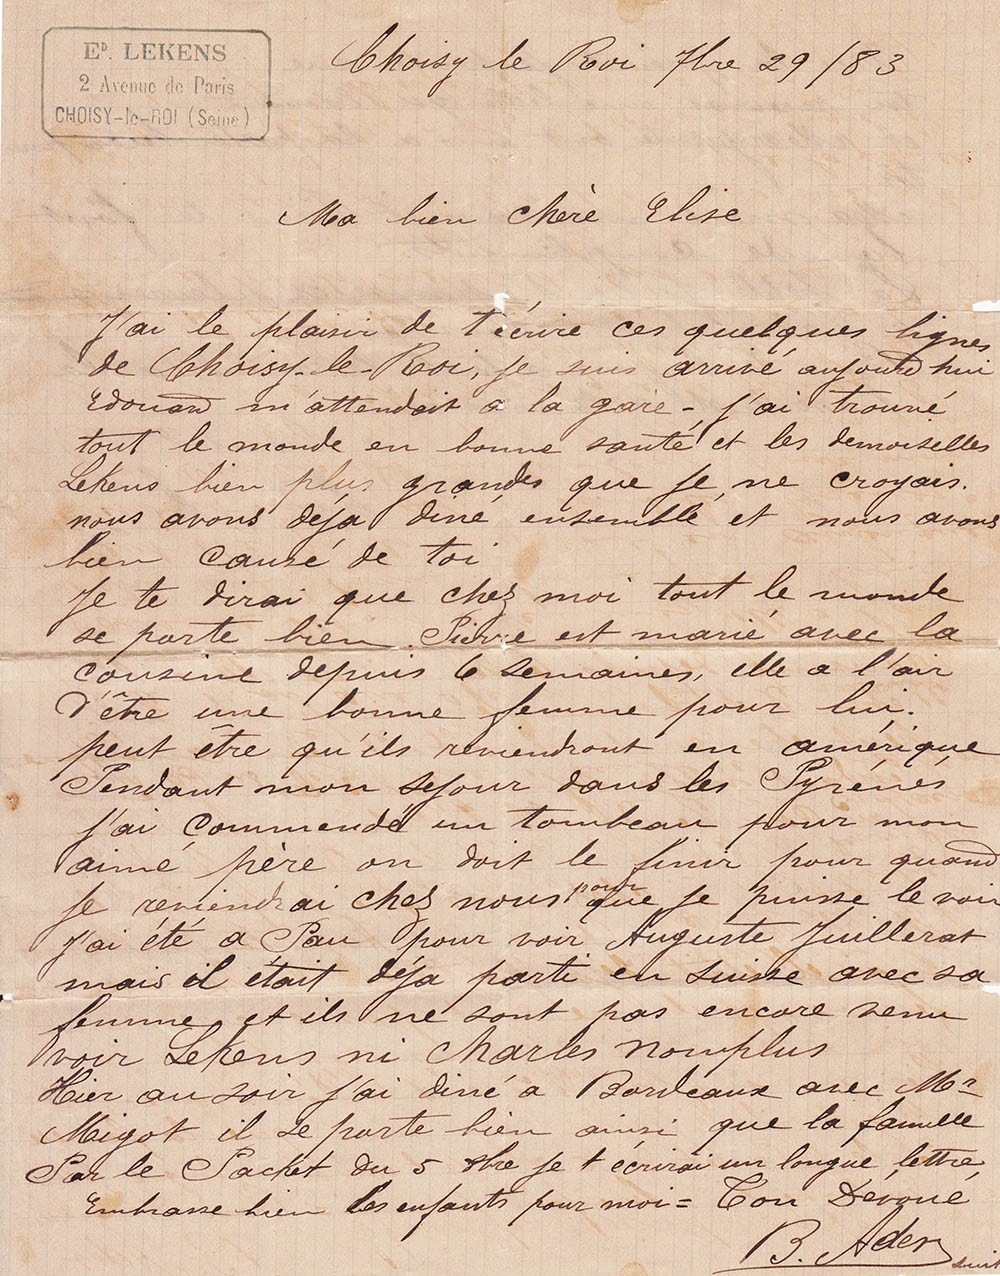 ED. LEKENS
2 Avenue de Paris
CHOISY-le-ROI (Seine)
Choisy le Roi 7bre 29/83
Ma bien chère Elise
J'ai le plaisir de t'écrire ces quelques lignes
de Choisy-le-Roi, je suis arrivé aujourd'hui
Edouard m'attendait a la gare - j'ai trouvé
tout le monde en bonne santé et les demoiselles
Lekens bien plus grandes que je ne croyais.
nous avons déja diné ensemble et nous avons
bien causé de toi
Je te dirai que chez moi tout le monde
se porte bien. Pierre est marié avec la
cousine depuis 6 semaines, elle a l'air
d'être une bonne femme pour lui.
peut être qu'ils reviendront en amérique
Pendant mon sejour dans les Pyrénés
j'ai commendé un tombeau pour mon
aimé père on doit le finir pour quand
je reviendrai chez nous pour que je puisse le voir
J'ai été a Pau pour voir Auguste Juillerat
mais il était déja parti en suisse avec sa
femme et ils ne sont pas encore venu
voir Lekens ni Charles nomplus
Hier au soir j'ai diné a Bordeaux avec Mr
Migot il se porte bien ainsi que la famille
Par le Packet du 5 8bre je t'écrirai un longue lettre
Embrasse bien les enfants pour moi = Ton Dévoué
B. Ader
suit